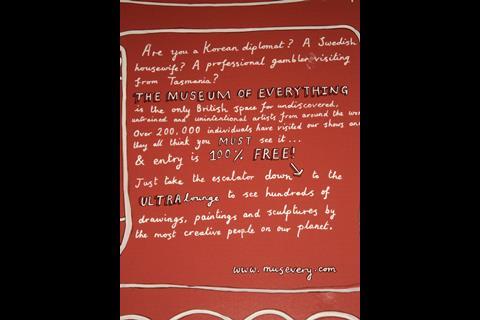 Are you a Korean diplomat? A Swedish
housewife? A professional gambler visiting
from Tasmania?
THE MUSEUM OF EVERYTHING
is the only British space for undiscovered,
untrained and unintentional artists from around the
Over 200,000 individuals have visited our shows and
they all think you MUST see it...
& entry is 100% FREE!
Just take the escalator down to the
ULTRA lounge to see hundreds of
drawings, paintings and sculptures by
the most creative people on our planet.
www.musevery.com